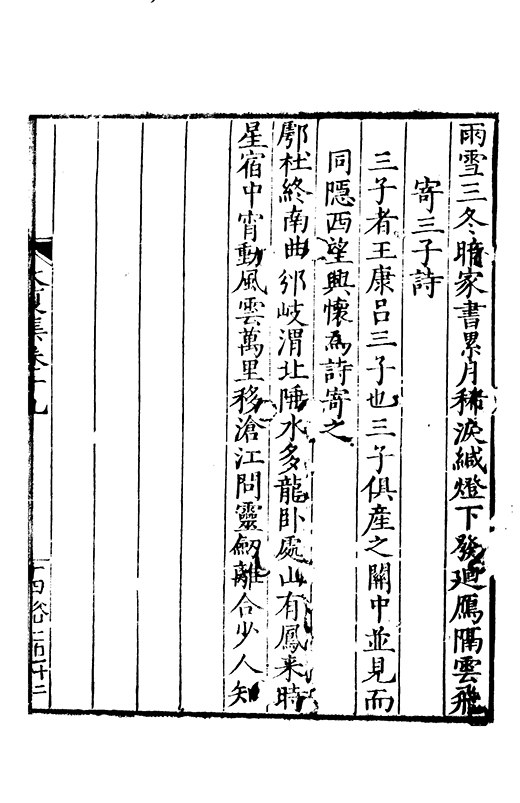 雨雪三冬暗家書累月稀淚緘燈下發廻鴈隔雲飛
寄三子詩
三子者王康呂三子也三子俱產之關中並見而
同隱西望興懷爲詩寄之
鄠杜終南曲邠岐渭北陲水多龍臥處山有鳳来時
星宿中宵動風雲萬里移滄江問靈劒離合少人知
大復集卷十九